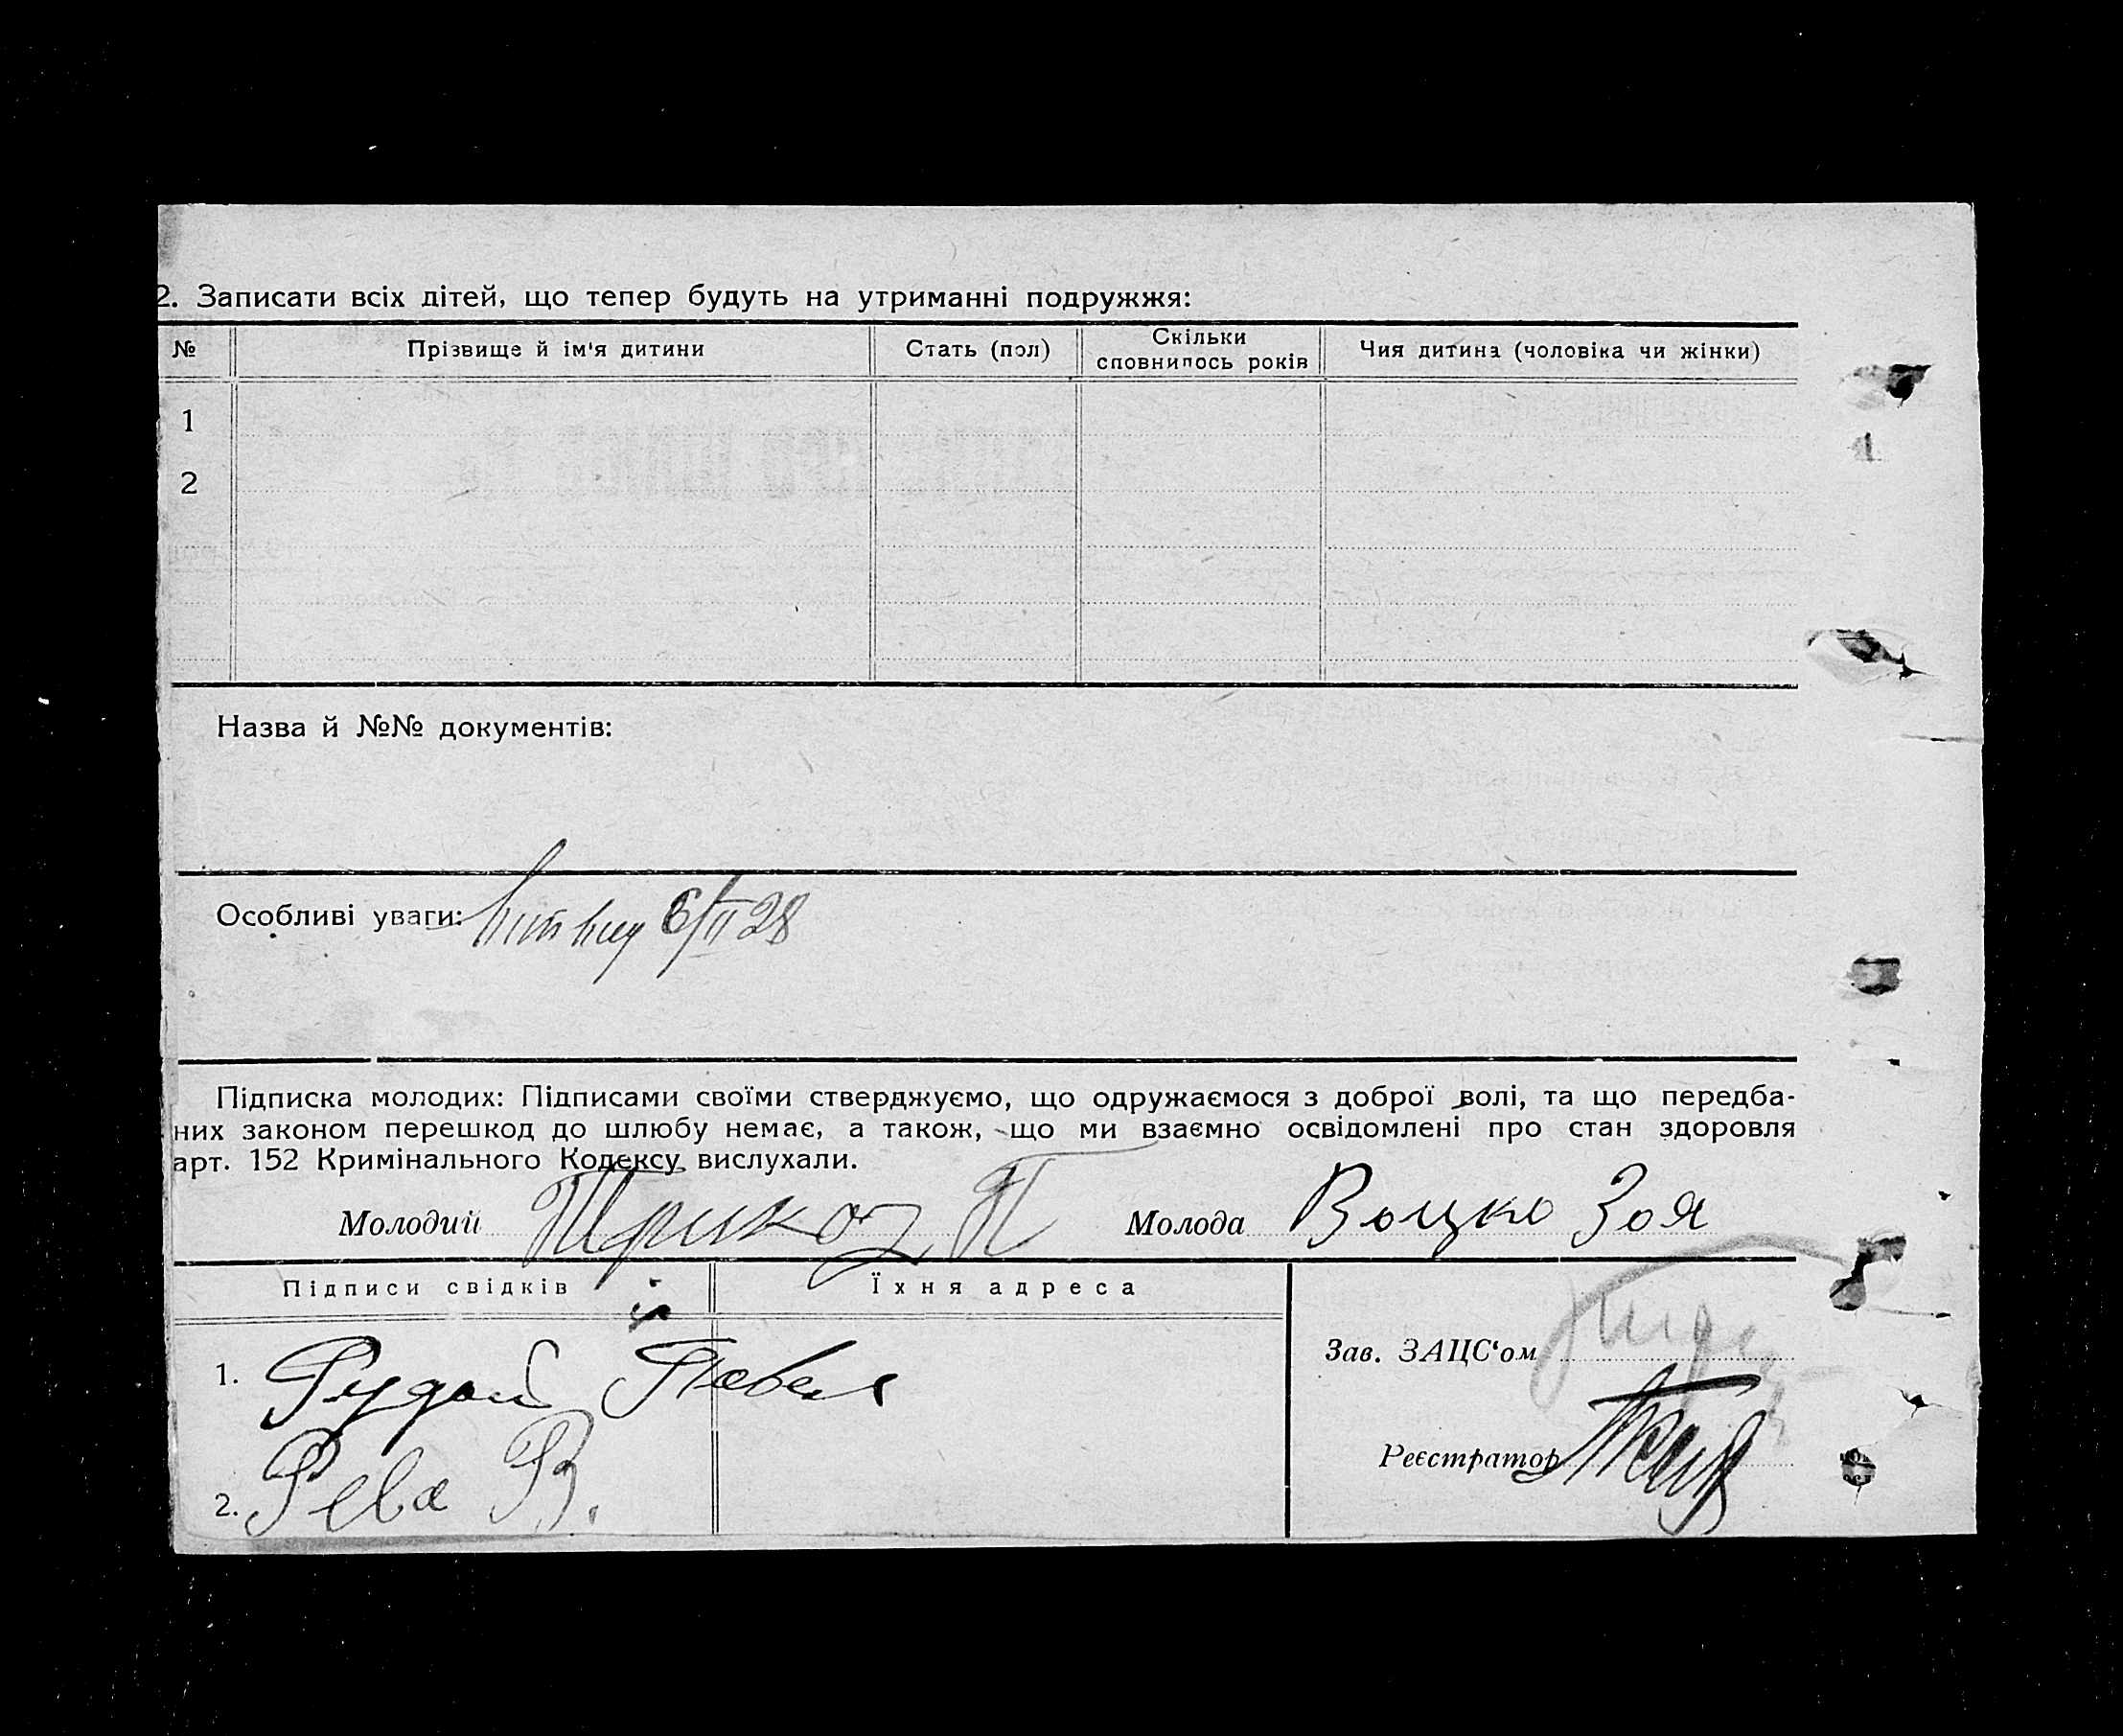 2. Записати всіх дітей, що тепер будуть на утриманні подружжя:
№ Прізвище й ім'я дитини Стать (пол) Скільки сповнилось років Чия дитина (чоловіка чи жінки)
1
2
Назва й №№ документів:
Особливі уваги: 6/II 28
Підписка молодих: Підписами своїми стверджуємо, що одружаємося з доброї волі, та що передба-
них законом перешкод до шлюбу немає, а також, що ми взаємно освідомлені про стан здоровля
арт. 152 Кримінального Кодексу вислухали.
Молодий Трикоз П Молода Воцко Зоя
Підписи свідків Їхня адреса
Зав. ЗАЦС'ом
1. Рудой Павел
Реєстратор
2. Рева В.